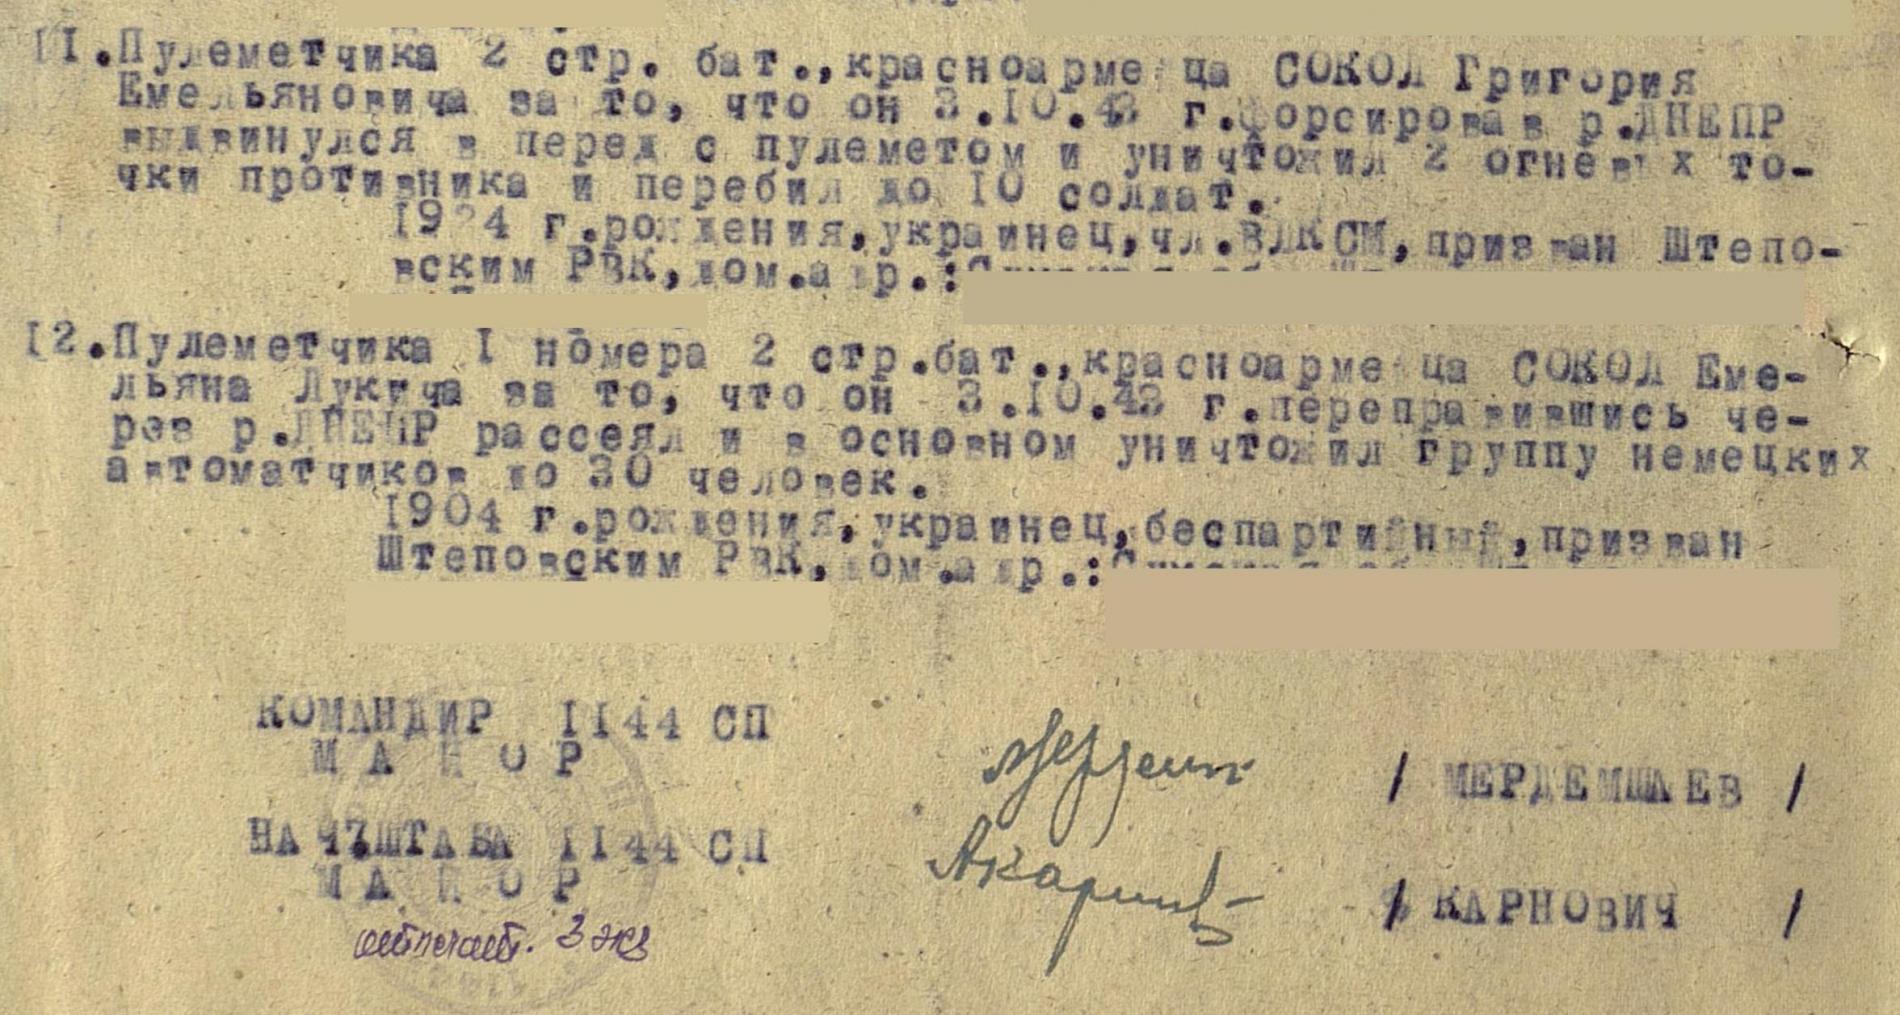 11.Пулеметчика 2 стр. бат.,красноармейца СОКОЛ Григория
Емельяновича за то, что он 3.10.43 г.форсировав р.ДНЕПР
выдвинулся в перед с пулеметом и уничтожил 2 огневых то-
чки противника и перебил до 10 солдат.
1924 г.рождения,украинец,чл.ВЛКСМ,призван Штепо-
вским РВК,дом.адр.:
12.Пулеметчика I номера 2 стр.бат.,красноармейца СОКОЛ Еме-
льяна Лукича за то, что он 3.10.43 г.переправившись че-
рез р.ДНЕПР рассеял и в основном уничтожил группу немецких
автоматчиков до 30 человек.
1904 г.рождения,украинец,беспартийный,призван
Штеповским РВК,дом.адр.:
КОМАНДИР 1144 СП
МАЙОР
/ МЕРДЕМШАЕВ /
НАЧ.ШТАБА 1144 СП
МАЙОР
/ КАРНОВИЧ /
отпечат. 3 экз